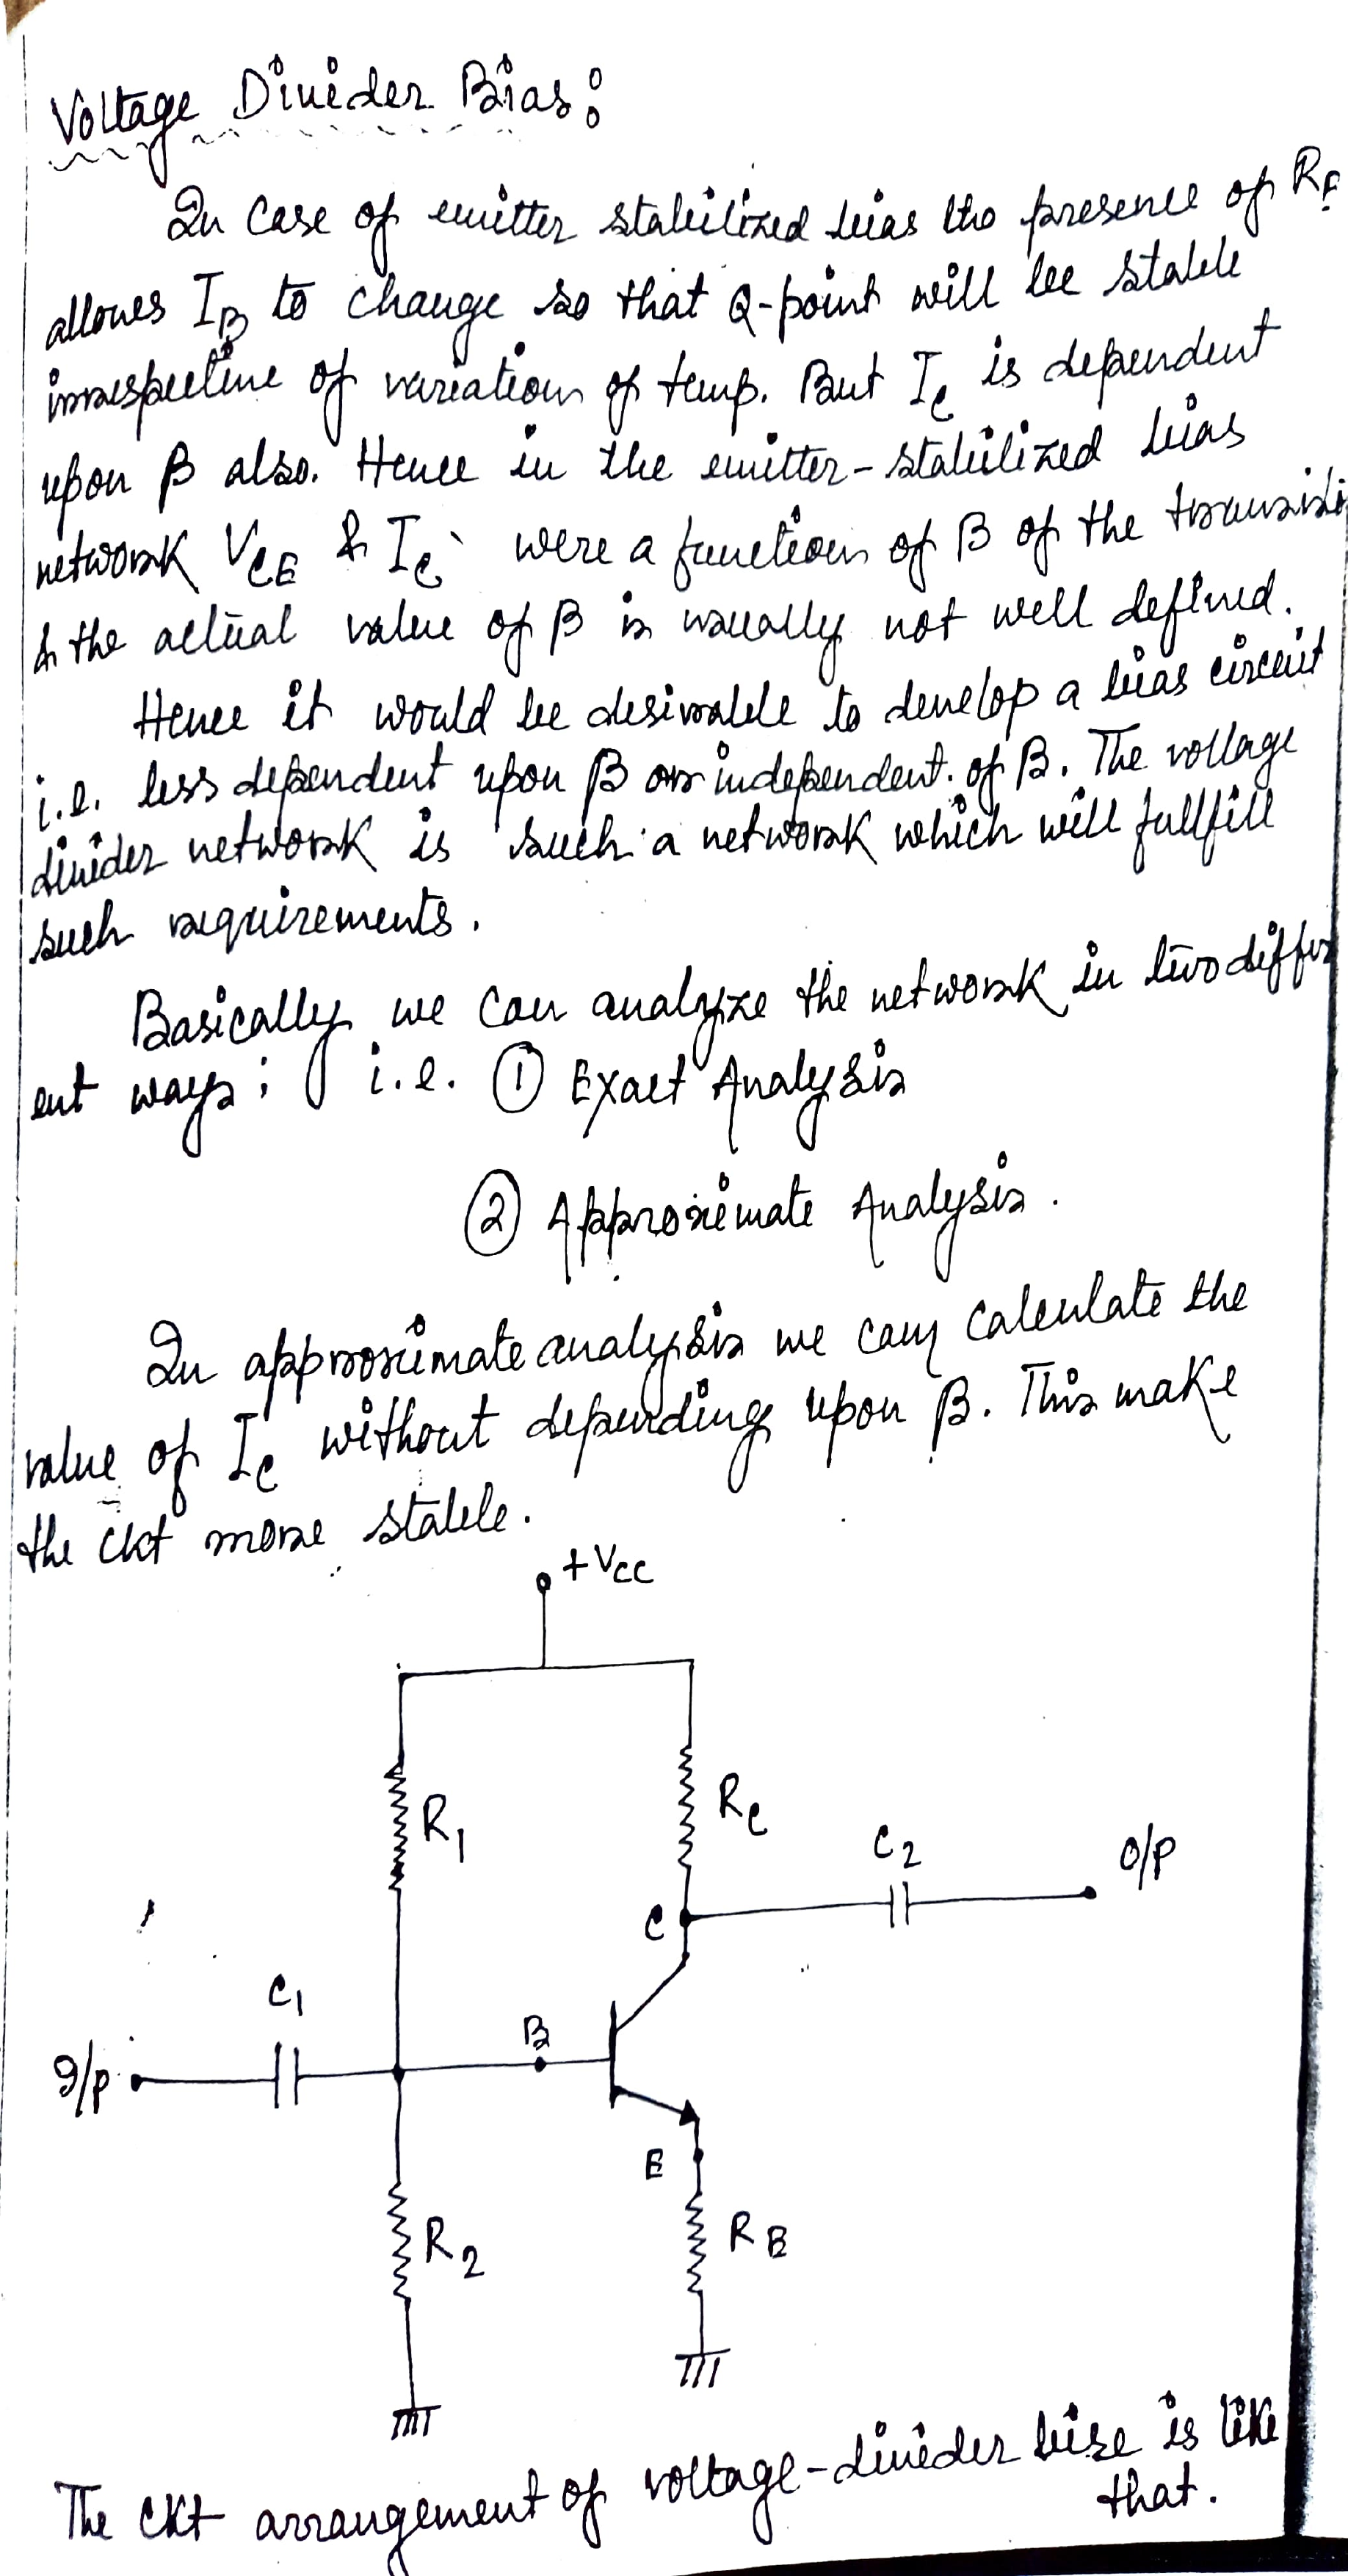 Voltage Divider Bias:
In case of emitter stabilized bias the presence of RE
allows IB to change so that Q-point will be stable
irrespective of variation of temp. But IC is dependent
upon β also. Hence in the emitter-stabilized bias
network VCE & IC were a function of β of the transisto
& the actual value of β is usually not well defined.
Hence it would be desirable to develop a bias circuit
i.e. less dependent upon β or independent of β. The voltage
divider network is such a network which will fullfill
such requirements.
Basically we can analyze the network in two differ
ent ways; i.e. ① Exact Analysis
② Approximate Analysis.
In approximate analysis we can calculate the
value of IC without depending upon β. This make
the ckt more stable.
+VCC
R1
RC
C2
O/P
C
C1
B
I/P
E
R2
RE
The ckt arrangement of voltage-divider bise is like
that.